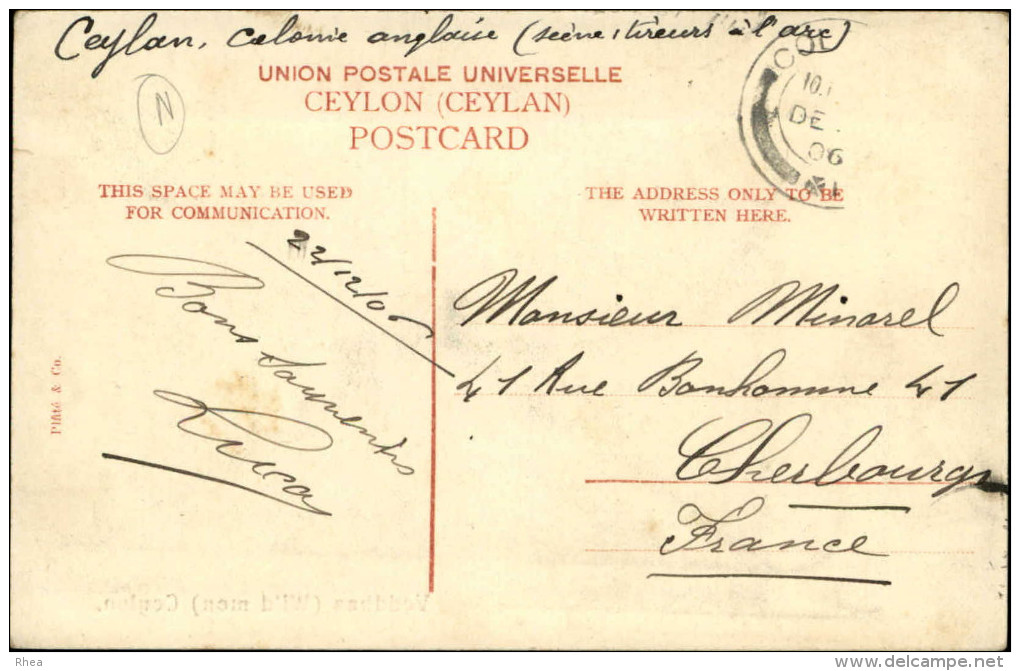 Ceylan, Colonie anglaise (scène : tireurs à l'arc)
UNION POSTALE UNIVERSELLE
CEYLON (CEYLAN)
POSTCARD
N
COL
10.
DE
06
THIS SPACE MAY BE USED
FOR COMMUNICATION.
THE ADDRESS ONLY TO BE
WRITTEN HERE.
22/12/06
Bons
Monsieur Minorel
41 Rue Bonhomme 41
Cherbourg
France
Plâté & Co.
Veddhas (Wild men) Ceylon.
Rhea
www.delcampe.net